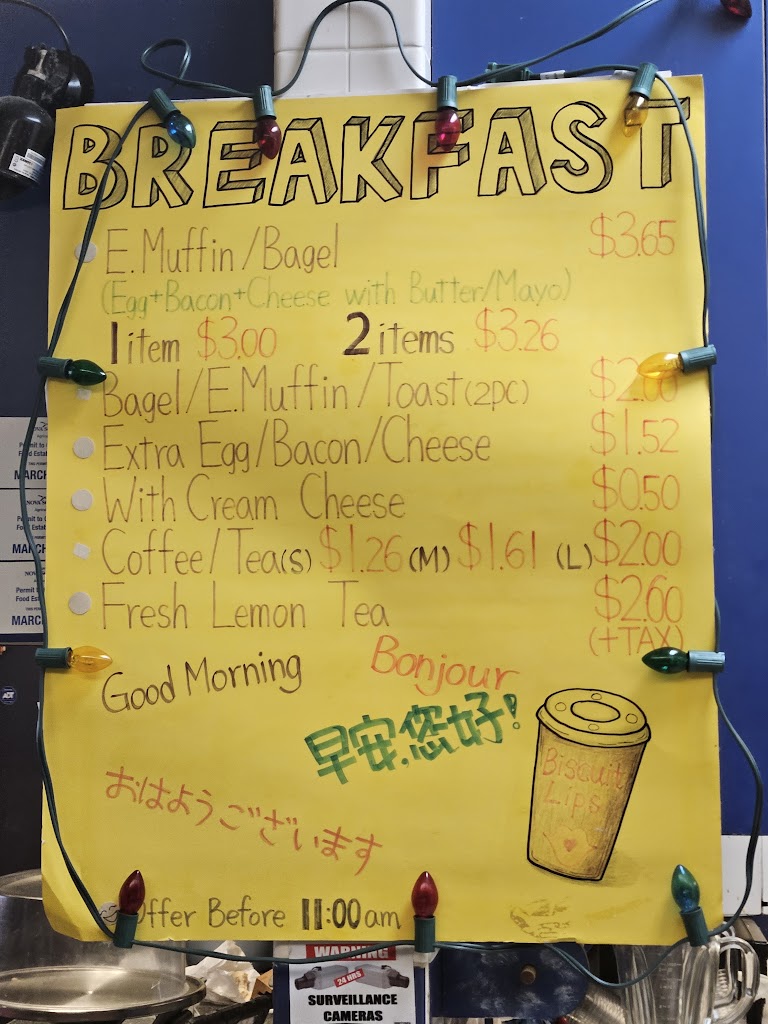 BREAKFAST
E.Muffin/Bagel $3.65
(Egg+Bacon+Cheese with Butter/Mayo)
1 item $3.00 2 items $3.26
Bagel/E.Muffin/Toast(2PC) $2.00
Extra Egg/Bacon/Cheese $1.52
With Cream Cheese $0.50
Coffee/Tea(S) $1.26 (M) $1.61 (L) $2.00
Fresh Lemon Tea $2.60
(+TAX)
Good Morning Bonjour
早安,您好!
Biscuit
Lips
おはようございます
Offer Before 11:00am
WARNING
24 HRS
SURVEILLANCE
CAMERAS
Permit to
Food Esta
MARCH
Permit to
Food Esta
MARCH
Permit to
Food Esta
MARCH
ADT